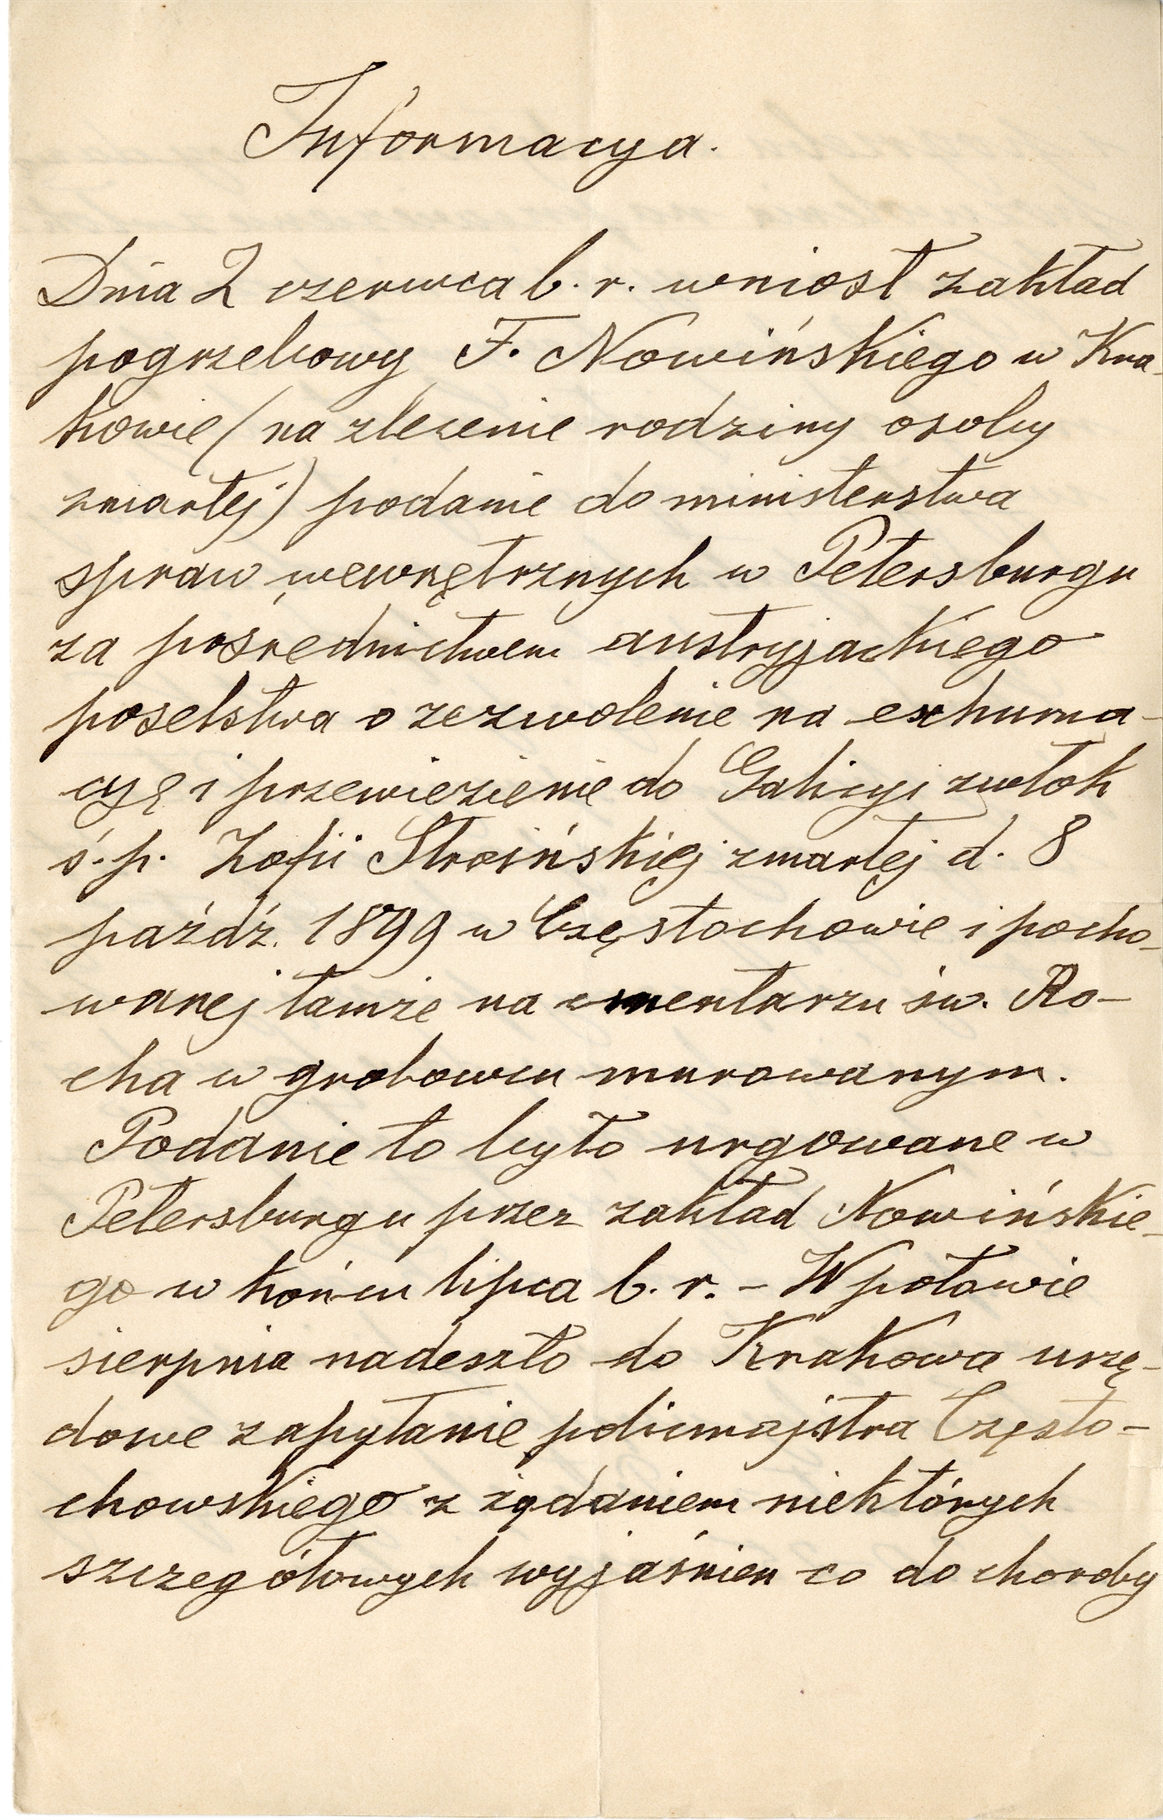 Informacya.
Dnia 2 czerwca b. r. wniósł zakład
pogrzebowy F. Nowińskiego w Kra-
kowie (na zlecenie rodziny osoby
zmarłej) podanie do ministerstwa
spraw wewnętrznych w Petersburgu
za pośrednictwem austryjackiego
poselstwa o zezwolenie na exhuma-
cyę i przewiezienie do Galicyi zwłok
ś. p. Zofii Stroińskiej zmarłej d. 8
paźdź. 1899 w Częstochowie i pocho-
wanej tamże na cmentarzu św. Ro-
cha w grobowcu murowanym.
Podanie to było urgowane w
Petersburgu przez zakład Nowińskie-
go w końcu lipca b. r. – W połowie
sierpnia nadeszło do Krakowa urzę-
dowe zapytanie policmajstra Często-
chowskiego z żądaniem niektórych
szczegółowych wyjaśnień co do choroby